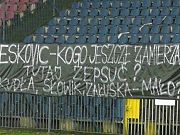 ESKOVIC-KOGO JESZCZE ZAMIERZA
TUTAJ ZEPSUĆ?
SŁOWIK-ZAŁUSKA-MAŁO?